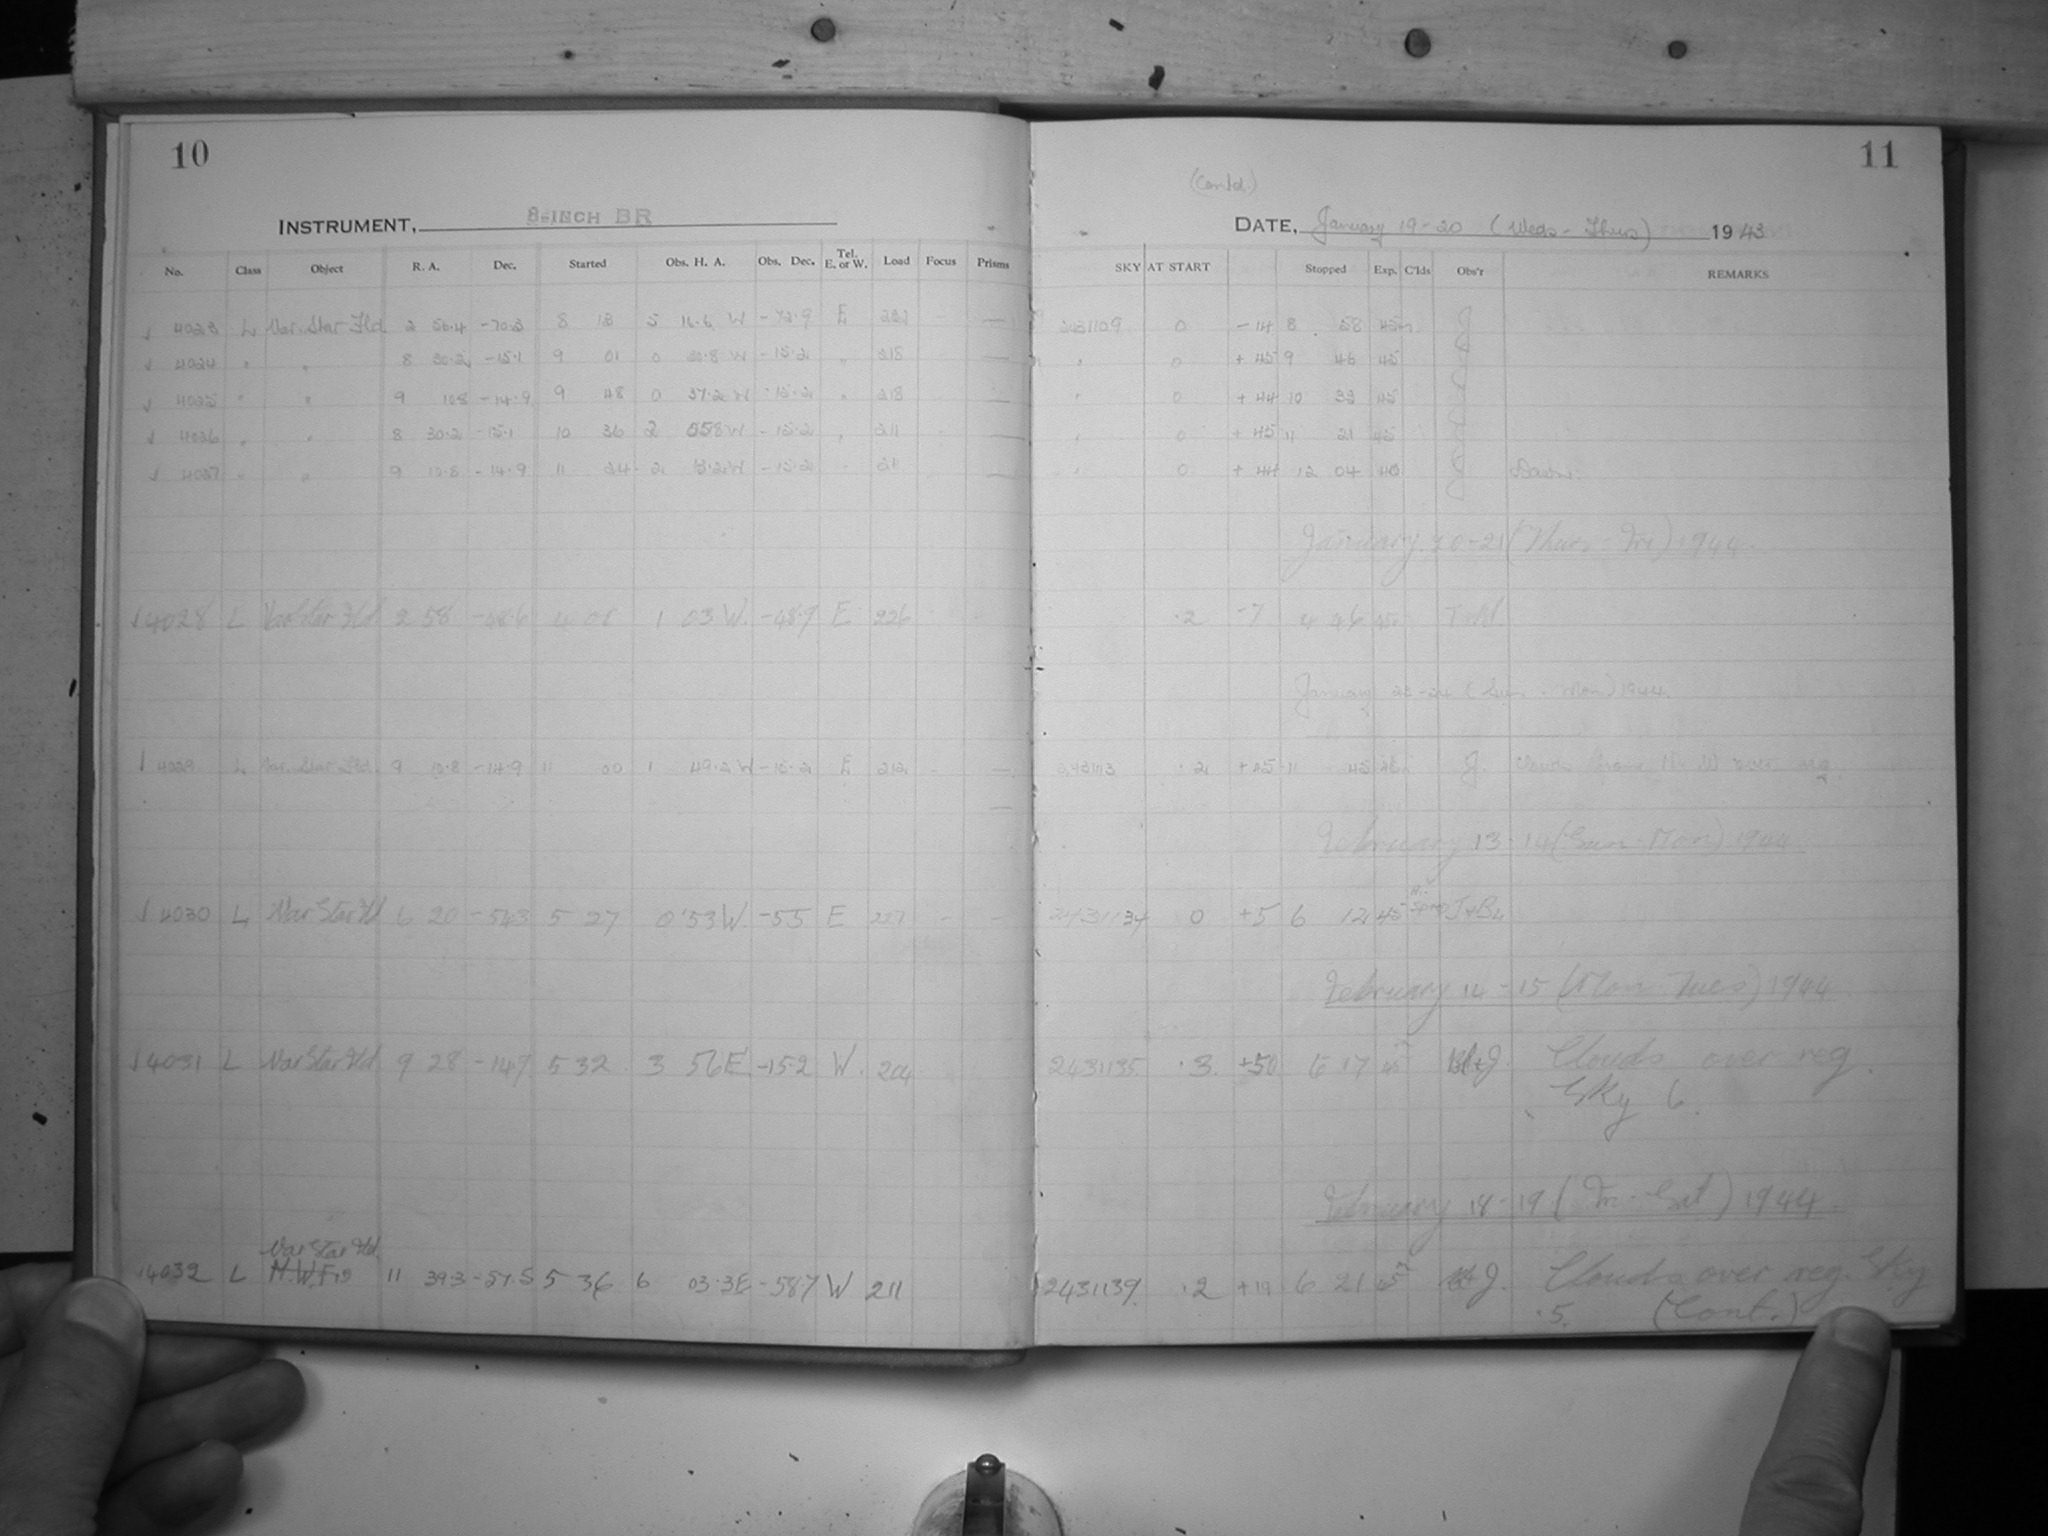 10
INSTRUMENT, 8-INCH BR
No. Class Object R. A. Dec. Started Obs. H. A. Obs. Dec. Tel. E. or W. Load Focus Prisms
4023 L Var. Star Fld 2 56.4 -70.3 8 13 5 16.6 W -72.9 E
4024 " " 8 30.2 -15.1 9 01 0 30.8 W -15.2 " 218
4025 " " 9 10.8 -14.9 9 48 0 37.2 W -15.2 " 218
4026 " " 8 30.2 -15.1 10 36 2 05.8 W -15.2 " 211
4027 " " 9 10.8 -14.9 11 24 2 13.2 W -15.2 " 211
4028 L Var Star Fld 2 58 -48.6 4 01 1 03 W. -48.9 E 226
4029 L Var. Star Fld. 9 10.8 -14.9 11 00 1 49.2 W -15.2 E 212
4030 L Var Star Fld 6 20 -543 5 27 0 53 W. -55 E 227
4031 L Var Star Fld 9 28 -147 5 32 3 56 E -15.2 W. 204
Var Star Fld
4032 L 11 39.3 -57.5 5 36 6 03.3 E -587 W 211
11
(Contd.)
DATE, January 19-20 (Weds - Thurs) 1943
SKY AT START Stopped Exp. C'lds Obs'r REMARKS
2431109 0 -14 8 58 45m J
" 0 +45 9 46 45 J
" 0 +44 10 33 45 J
" 0 +45 11 21 45 J
" 0 +44 12 04 40 J Dawn.
January 20-21 (Thurs - Fri) 1944.
.2 -7 4 46 45
January 23-24 (Sun. - Mon) 1944.
2431113 .2 +45 11 45 45 J. Clouds from N. W over reg.
February 13-14 (Sun - Mon) 1944
2431134 0 +5 6 12 45
February 14-15 (Mon - Tues) 1944
2431135 .3 +50 6 17 45 Clouds over reg.
Sky 6.
February 18-19 (Fri - Sat) 1944.
2431139. .2 +19 6 21 45 J. Clouds over reg. Sky
.5. (Cont.)